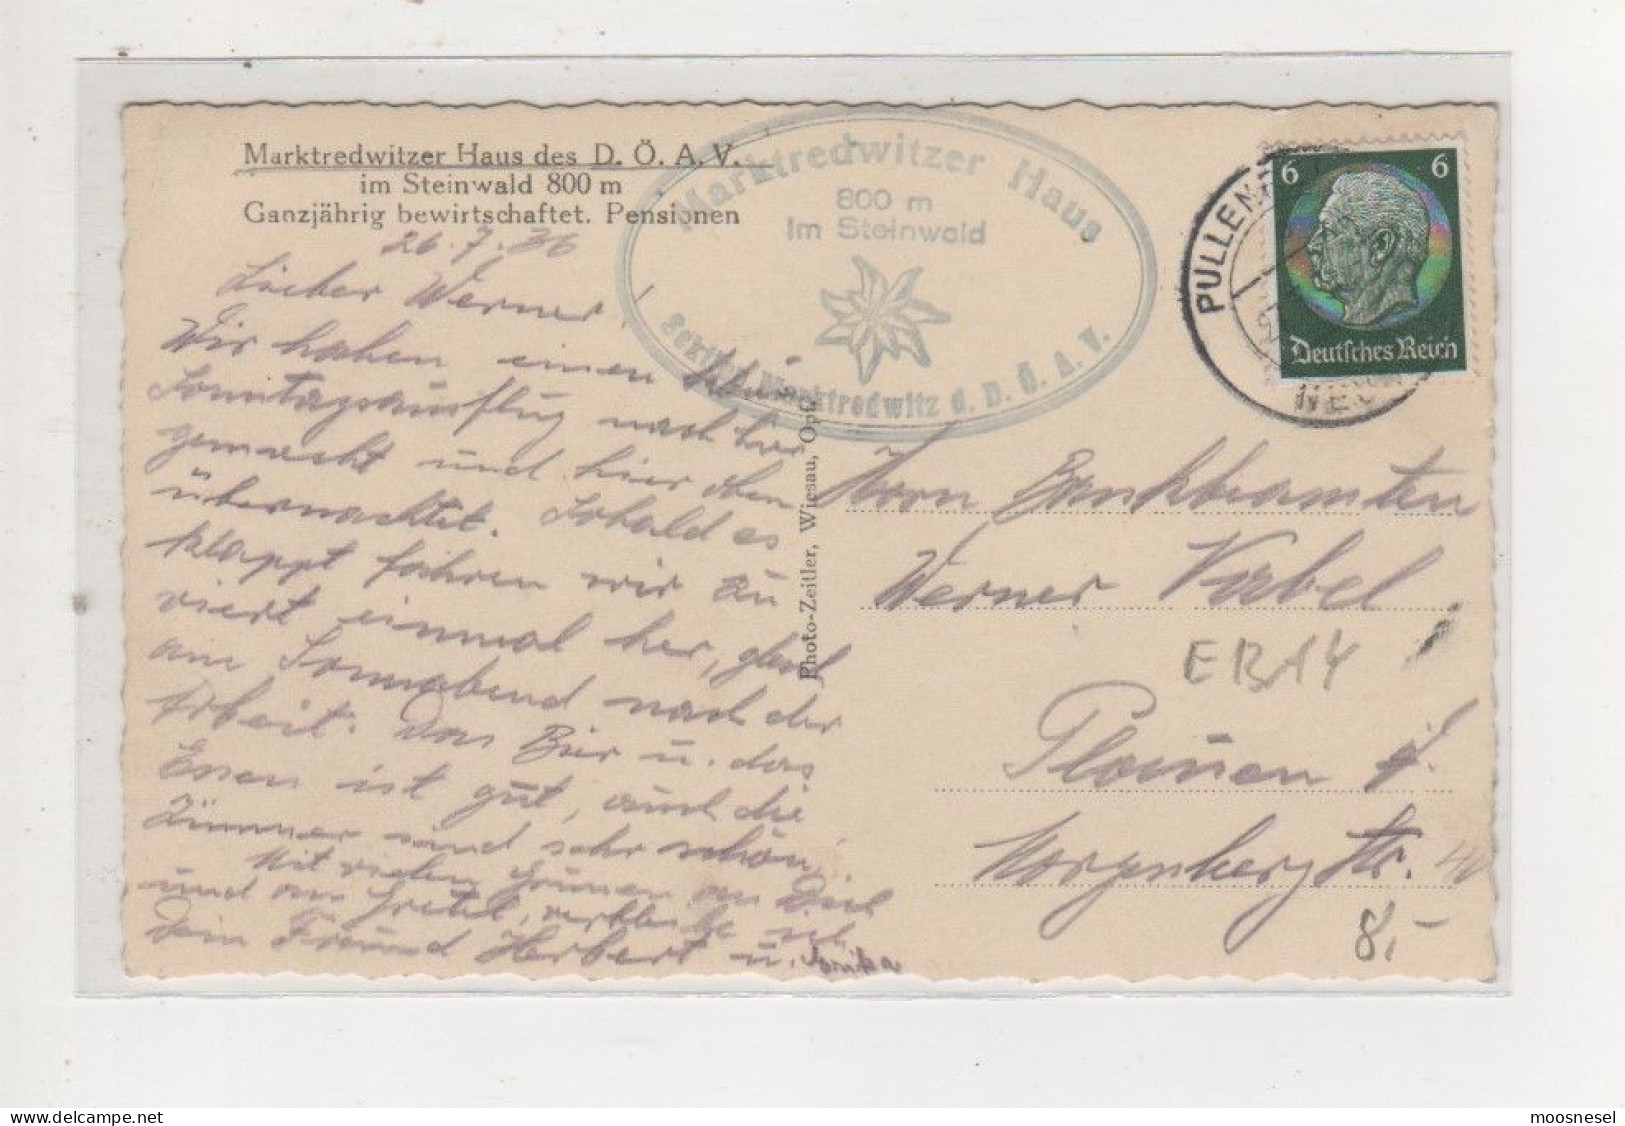 Marktredwitzer Haus des D. Ö. A. V.
im Steinwald 800 m
Ganzjährig bewirtschaftet. Pensionen
Marktredwitzer Haus
800 m
Im Steinwald
Sektion Marktredwitz d. D. Ö. A. V.
PULLEN
6 6
Deutsches Reich
26.7.36
Lieber Werner!
Wir haben einen
Sonntagsausflug nach hier
gemacht und hier oben
übernachtet. Sobald es
klappt fahren wir zu
viert einmal her, gleich
am Sonnabend nach der
Arbeit. Das Bier u. das
Essen ist gut, auch die
Zimmer sind sehr schön.
Mit vielen Grüssen an Dich
und an Gretel, verbleibe ich
Dein Freund Herbert u. Erika
Photo-Zeitler, Wiesau, Opf.
Herrn Bankbeamten
Werner
EB14
Plauen
Morgenbergstr. 40
8,-
delcampe.net
moosnesel